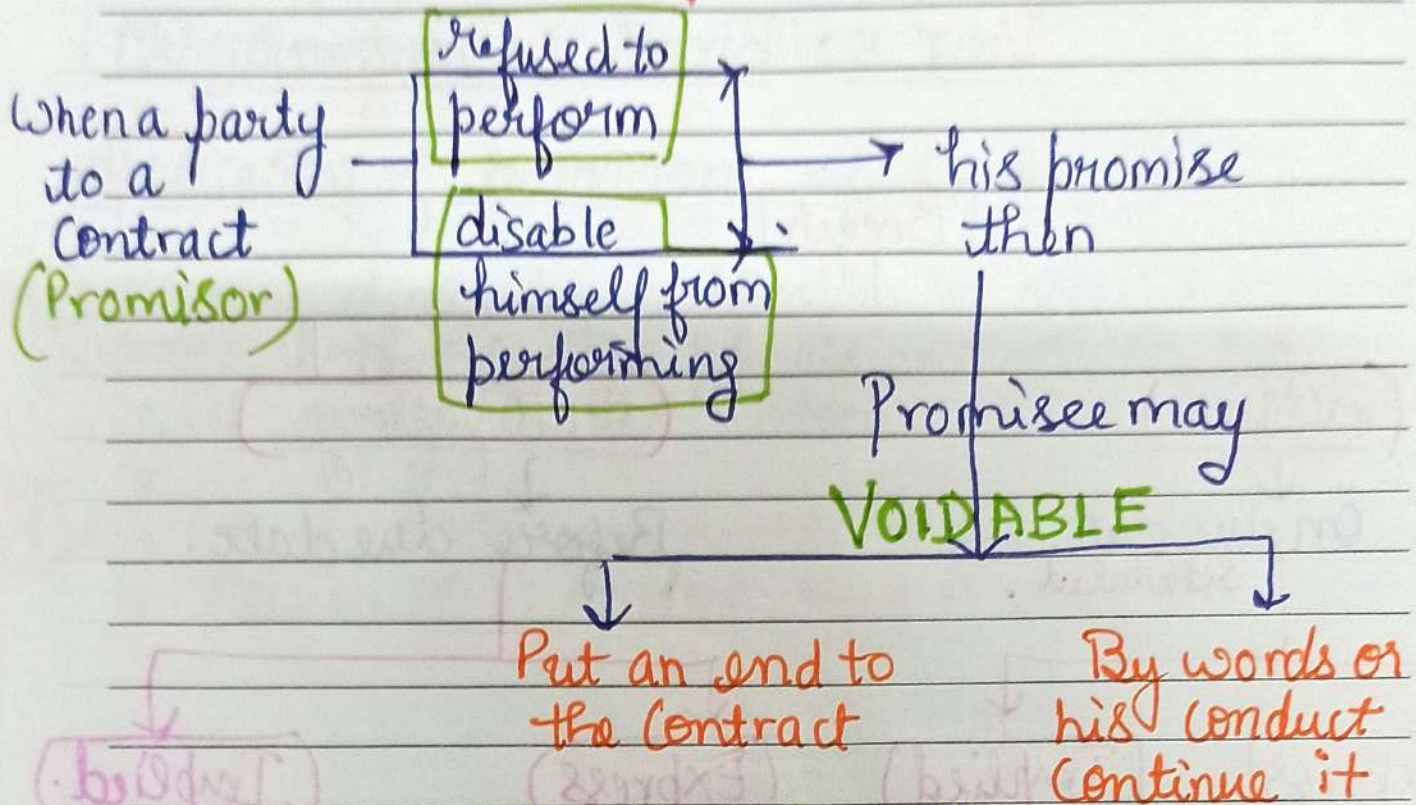 When a party
to a
Contract
(Promisor)
refused to
perform
disable
himself from
performing
his promise
then
Promisee may
VOIDABLE
Put an end to
the Contract
By words or
his conduct
Continue it